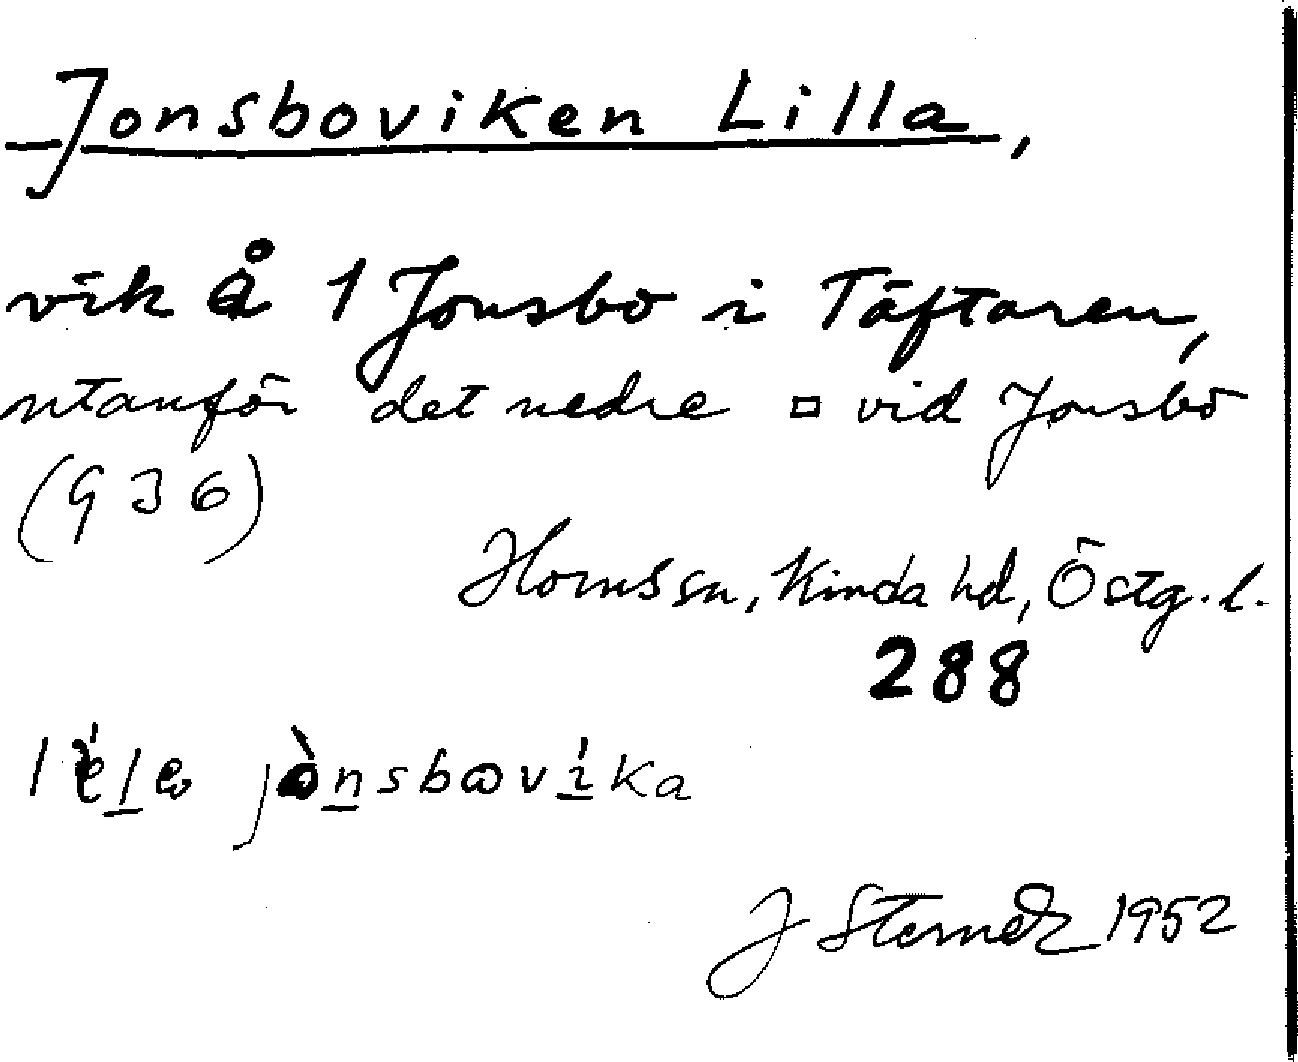 Jonsboviken Lilla,
vik å 1 Jonsbo i Täftaren,
utanför det nedre □ vid Jonsbo
(9 J 6)
Horns sn, Kinda hd, Östg. l.
288
jònsbωvíka
J Sterner 1952